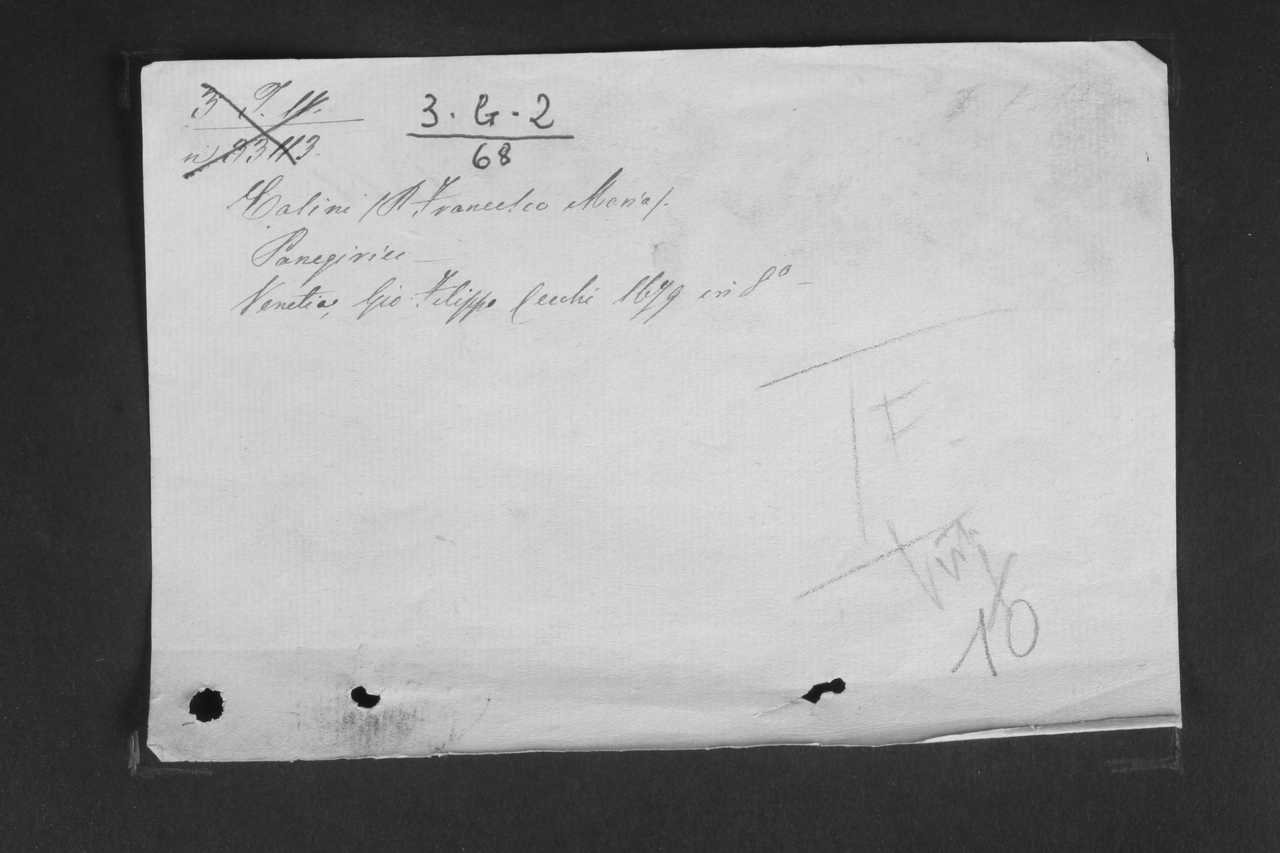 3. G. 2
68
Calini (P. Francesco Maria).
Panegirici —
Venetia, Gio: Filippo Cecchi 1679 in 8º —
10